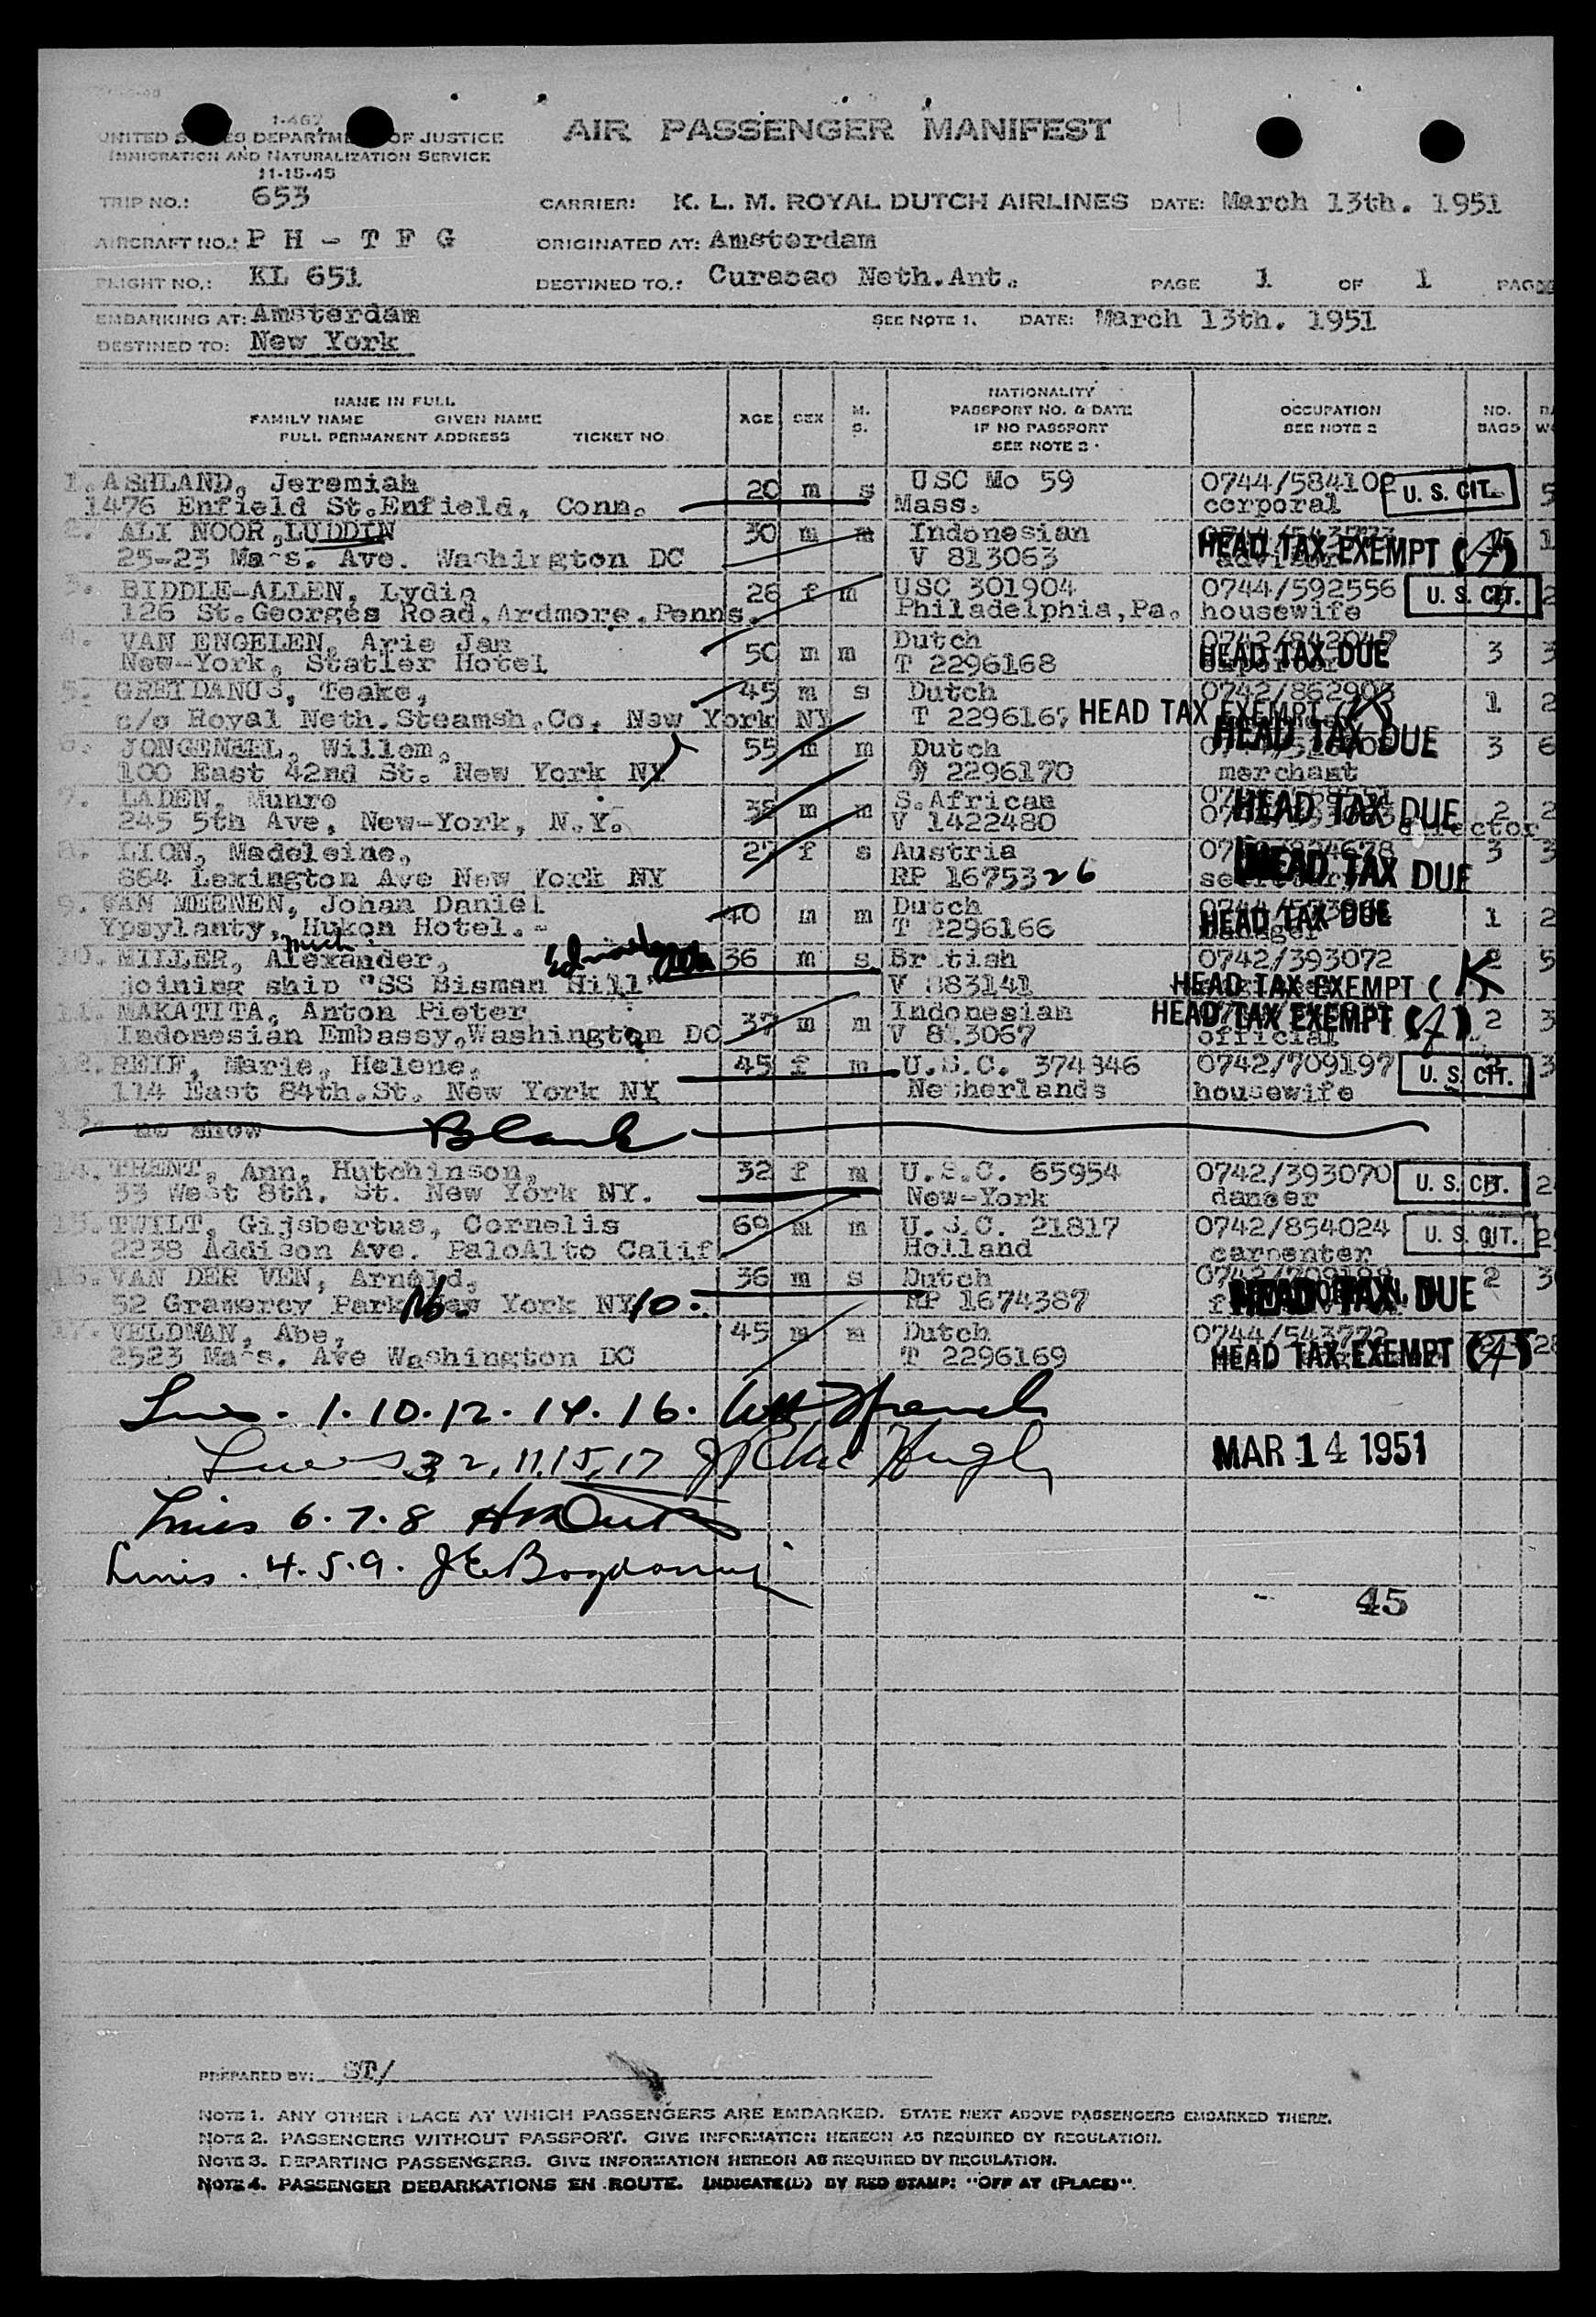 1-467
UNITED STATES DEPARTMENT OF JUSTICE
IMMIGRATION AND NATURALIZATION SERVICE
11-15-45
AIR PASSENGER MANIFEST
TRIP NO.: 653 CARRIER: K. L. M. ROYAL DUTCH AIRLINES DATE: March 13th. 1951
AIRCRAFT NO.: P H - T F G ORIGINATED AT: Amsterdam
FLIGHT NO.: KL 651 DESTINED TO.: Curacao Neth.Ant. PAGE 1 OF 1 PAGES
EMBARKING AT: Amsterdam SEE NOTE 1. DATE: March 13th. 1951
DESTINED TO: New York
NAME IN FULL
FAMILY NAME GIVEN NAME
FULL PERMANENT ADDRESS TICKET NO.
AGE SEX M. S.
NATIONALITY
PASSPORT NO. & DATE
IF NO PASSPORT
SEE NOTE 2
OCCUPATION
SEE NOTE 2
NO. BAGS
1. ASHLAND, Jeremiah 20 m s USC Mo 59 0744/584102 U. S. CIT. 5
1476 Enfield St.Enfield, Conn. Mass. corporal
2. ALI NOOR,LUDDIN 30 m m Indonesian HEAD TAX EXEMPT 1
25-23 Mass. Ave. Washington DC V 813063
3. BIDDLE-ALLEN, Lydia 26 f m USC 301904 0744/592556 U. S. CIT. 2
126 St.Georges Road,Ardmore,Penns. Philadelphia,Pa. housewife
4. VAN ENGELEN, Arie Jan 50 m m Dutch 0742/842047 HEAD TAX DUE 3 3
New-York, Statler Hotel T 2296168
5. GREIDANUS, Teake, 45 m s Dutch 0742/862903 1 2
c/o Royal Neth.Steamsh.Co. New York NY T 2296167 HEAD TAX EXEMPT (K
6. JONGENEEL, Willem, 55 m m Dutch HEAD TAX DUE 3 6
100 East 42nd St. New York NY 2296170 merchant
7. LADEN, Munro 38 m m S.African HEAD TAX DUE 2 2
245 5th Ave, New-York, N.Y. V 1422480 director
8. LION, Madeleine, 27 f s Austria HEAD TAX DUE 3 3
864 Lexington Ave New York NY RP 1675326 secretary
9. VAN MEENEN, Johan Daniel 40 m m Dutch HEAD TAX DUE 1 2
Ypsylanty, Hukon Hotel.- T 2296166 manager
mich.
10. MILLER, Alexander, Edmonton 36 m s British 0742/393072 2 5
joining ship "SS Bisman Hill" V 883141 HEAD TAX EXEMPT ( K
11. MAKATITA, Anton Pieter 37 m m Indonesian HEAD TAX EXEMPT 2 3
Indonesian Embassy,Washington DC V 813067 official
12. REIF, Marie, Helene, 45 f m U.S.C. 374846 0742/709197 U. S. CIT. 3
114 East 84th.St. New York NY Netherlands housewife
13. no show Blank
14. TRENT, Ann, Hutchinson, 32 f m U.S.C. 65954 0742/393070 U. S. CIT. 2
33 West 8th. St. New York NY. New-York dancer
15. TWILT, Gijsbertus, Cornelis 69 m m U.S.C. 21817 0742/854024 U. S. CIT. 2
2238 Addison Ave. PaloAlto Calif Holland carpenter
16. VAN DER VEN, Arnold, 36 m s Dutch 0742/709198 HEAD TAX DUE 2 3
52 Gramercy Park No. New York NY 10. RP 1674387
17. VELDMAN, Abe, 45 m m Dutch 0744/543772 HEAD TAX EXEMPT 28
2523 Mass. Ave Washington DC T 2296169
Lines. 1.10.12.14.16.
Lines 3, 2, 11, 15, 17
MAR 14 1951
Lines 6.7.8
Lines. 4.5.9.
45
PREPARED BY: ST/
NOTE 1. ANY OTHER PLACE AT WHICH PASSENGERS ARE EMBARKED. STATE NEXT ABOVE PASSENGERS EMBARKED THERE.
NOTE 2. PASSENGERS WITHOUT PASSPORT. GIVE INFORMATION HEREON AS REQUIRED BY REGULATION.
NOTE 3. DEPARTING PASSENGERS. GIVE INFORMATION HEREON AS REQUIRED BY REGULATION.
NOTE 4. PASSENGER DEBARKATIONS EN ROUTE. INDICATE(D) BY RED STAMP: "OFF AT (PLACE)".